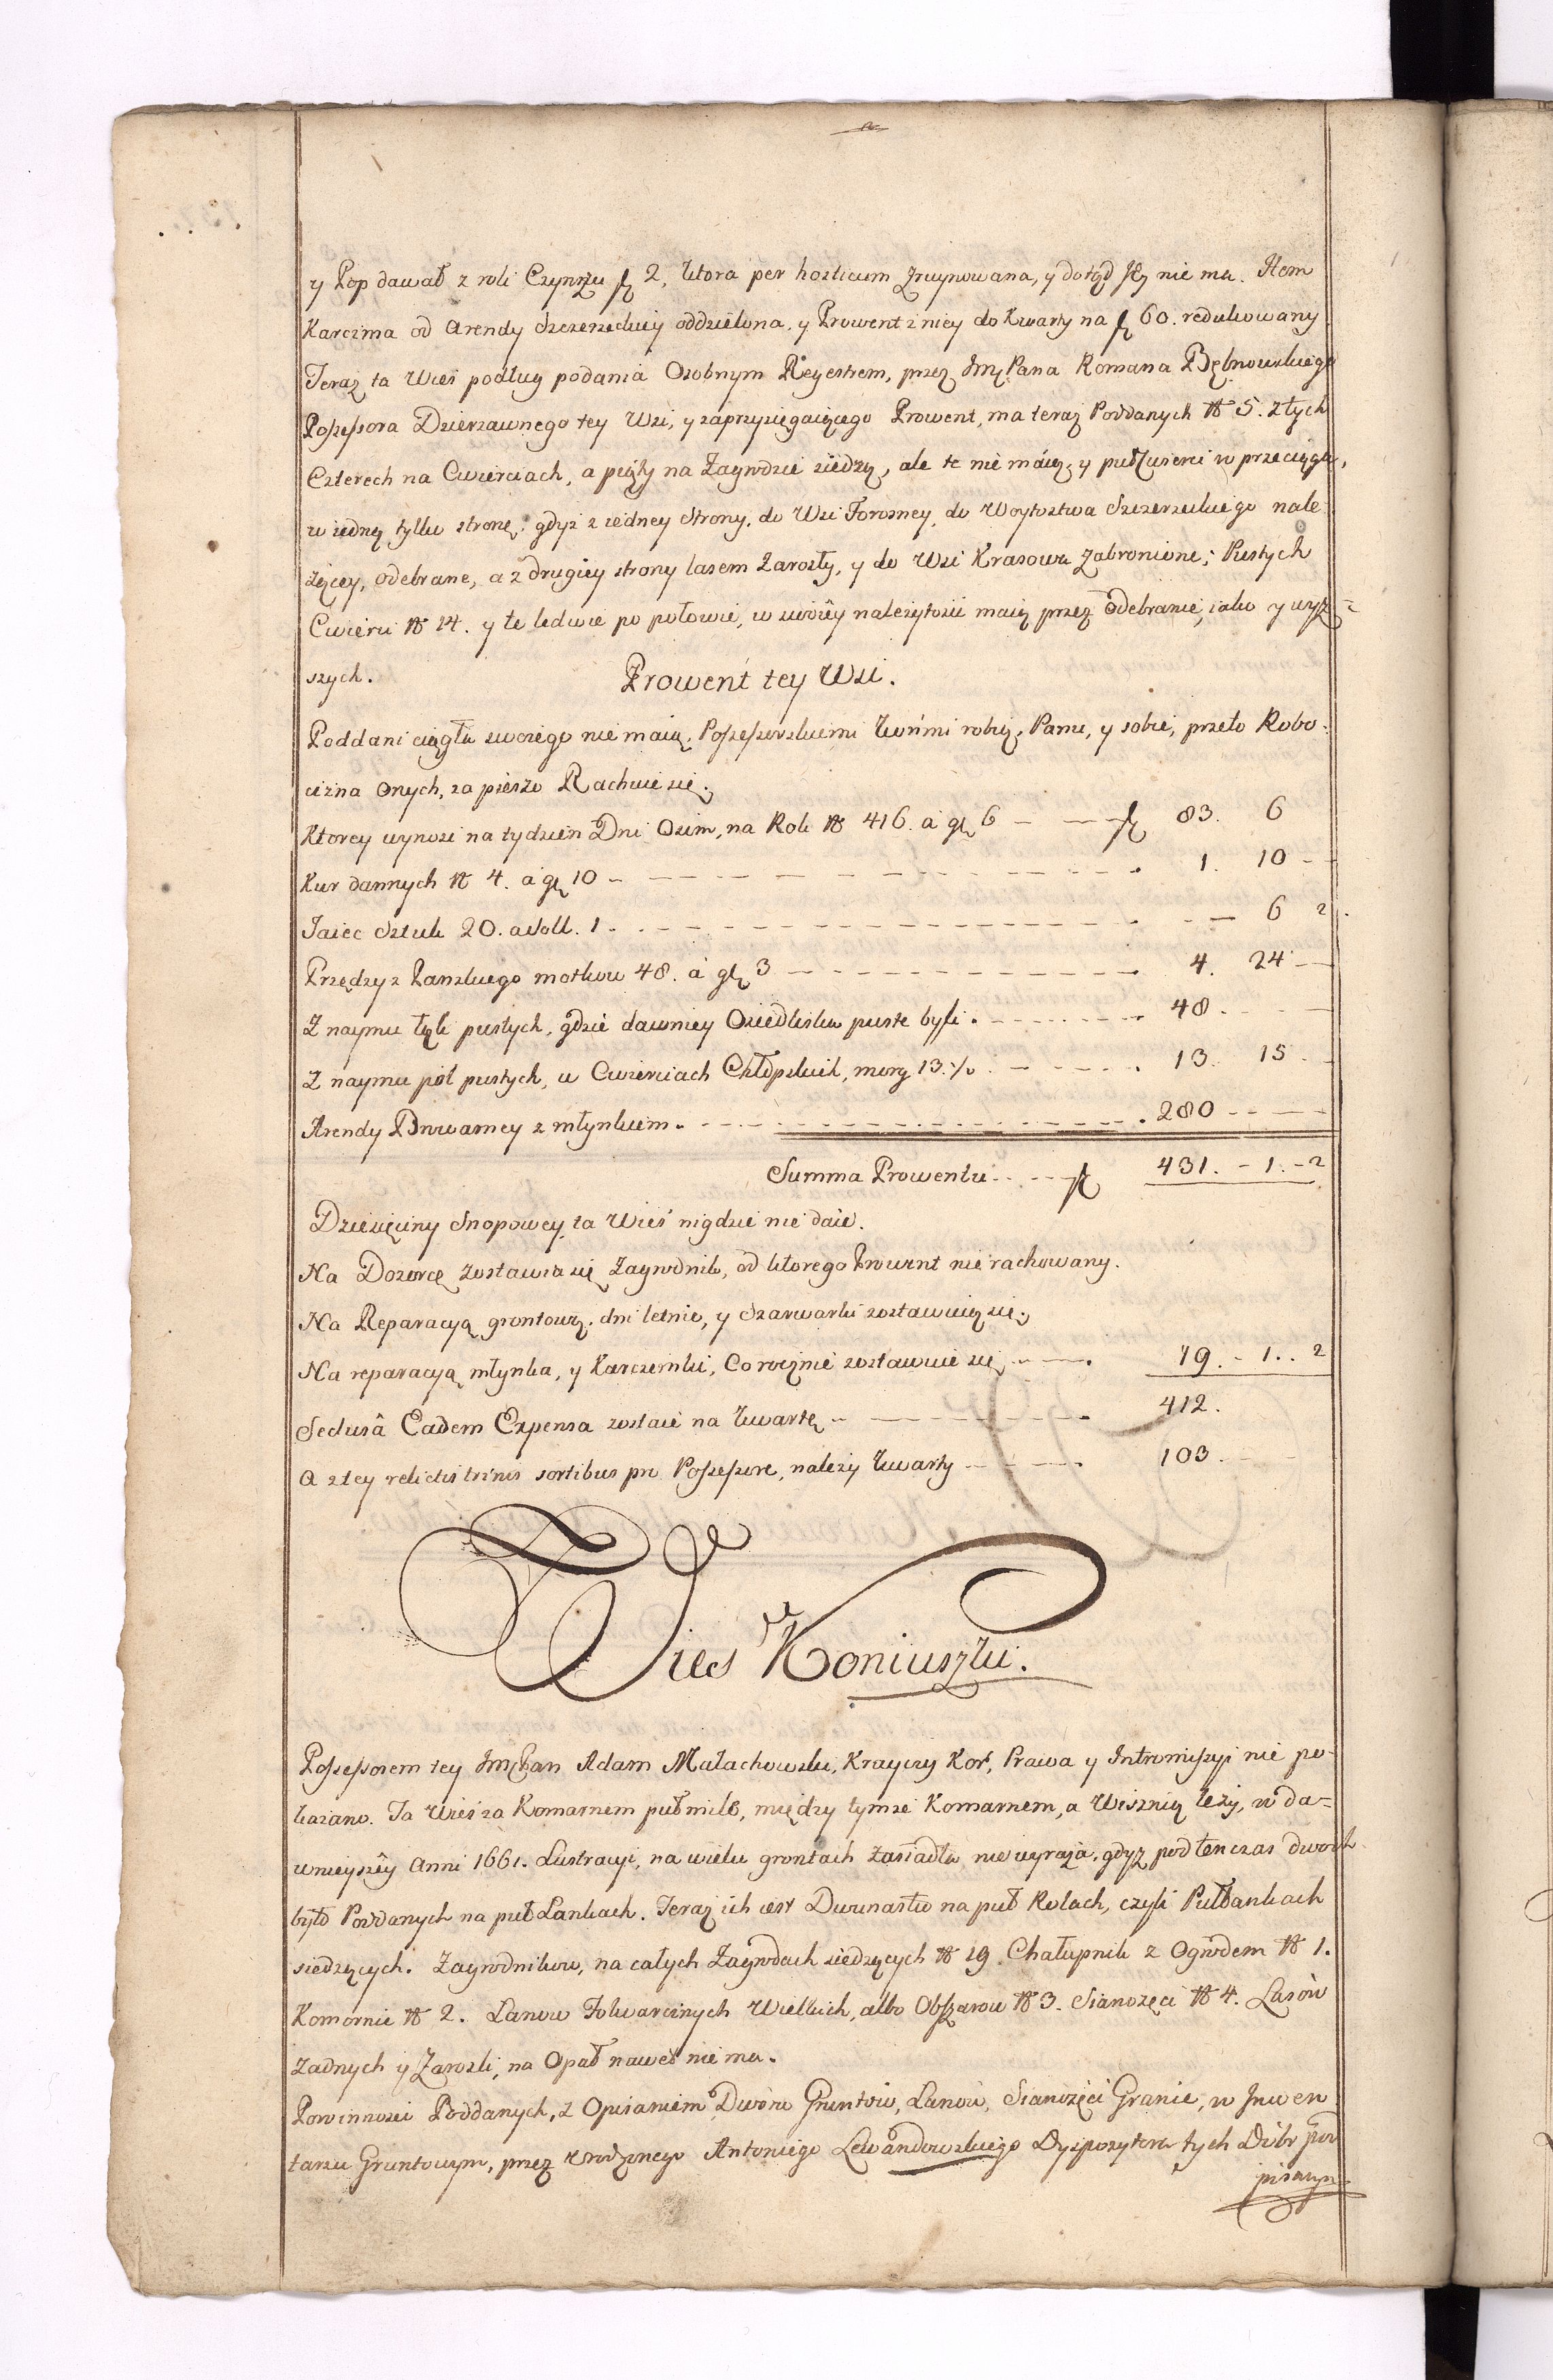 y Pop dawał z roli Czynszu fl 2, ktora per hosticum zruynowana, y dotąd iey nie ma. Item
Karczma od Arendy Szczerzeckiey oddzielona, y Prowent z niey do Kwarty na fl 60. redukowany
Teraz ta Wieś podług podania Osobnym Reyestrem, przez Jmć Pana Romana Bębnowskiego
Possessora Dzierzawnego tey Wsi, y zaprzysięgaiącego Prowent, ma teraz Poddanych N 5. z tych
Czterech na Cwierciach, a piąty na Zagrodzie siedzą, ale te nie maią, y puł Cwierci w przeciągu,
w iedną tylko stronę: gdyż z iedney Strony, do Wsi Forosney, do Woytostwa Szczerzeckiego nale
żącey, odebrane, a z drugiey strony lasem zarosły, y do Wsi Krasowa zabronione; Pustych
Cwierci N 14. y te ledwie po połowie, w swoiey należytości maią przez odebranie, iako y wyż=
szych.
Prowent tey Wsi.
Poddani ciągłu swoiego nie maią, Possessorskiemi końmi robią, Panu, y sobie, przeto Robo:
cizna Onych, za piesze Rachuie się.
Ktorey wynosi na tydzień Dni Osim, na Rok N 416. a gl 6 — — fl 83. 6
Kur dannych N 4. a gl 10 - — — — — 1. 10 - -
Jaiec Sztuk 20. a Soll. 1. - - - - - - — 6 2.
Przędzy z Pańskiego motkow 48. a gl 3 — - - - - - 4. 24 —
Z naymu łąk pustych, gdzie dawniey Osiedliska puste byli. - - - - - 48.
Z naymu pól pustych, w Cwierciach Chłopskich, morg 13 ½ . - - - - 13. 15. -
Arendy Browarney z młynkiem. - - - - - - - . 280 - - — —
Summa Prowentu. . - - fl 431. - 1. - 2
Dziesięciny Snopowey ta Wieś nigdzie nie daie.
Na Dozorcę zostawia się Zagrodnik, od ktorego Prowent nie rachowany.
Na Reparacyą grontową, dni letnie, y Szarwarki zostawuią się.
Na reparacyą młynka, y Karczemki, Corocznie zostawuie się - - —. 19. - 1. . 2
Seclusâ Eadem Expensa zostaie na kwartę - — - - - - 412.
A z tey relictis trinis sortibus pro Possessore, należy kwarty - - - - 103. - - —
Wieś Koniuszki.
Possessorem tey Jmć Pan Adam Małachowski, Krayczy Kor, Prawa y Intromissyi nie po-
kazano. Ta Wieś za Komarnem puł mile, między tymże Komarnem, a Wisznią leży, w da=
wnieyszêy Anni 1661. Lustracyi, na wielu grontach zasiadła nie wyraża, gdyż pod tenczas dwoch
było Poddanych na puł Lankach. Teraz ich iest Dwunastu na puł Rolach, czyli Pułłankach
siedzących. Zagrodnikow, na całych Zagrodach siedzących N 19. Chałupnik z Ogrodem N 1.
Komornic N 2. Lanow Folwarcznych Wielkich, albo Obszarow N 3. Sianozęci N 4. Lasów
zadnych y Zarosli, na Opał nawet nie ma.
Powinności Poddanych, z Opisaniem Dworu Gruntow, Lanow, Sianozęci Granic, w Inwen
tarzu Gruntowym, przez Urodzonego Antoniego Lewandowskiego Dyspozytora tych Dóbr pod
pisanym